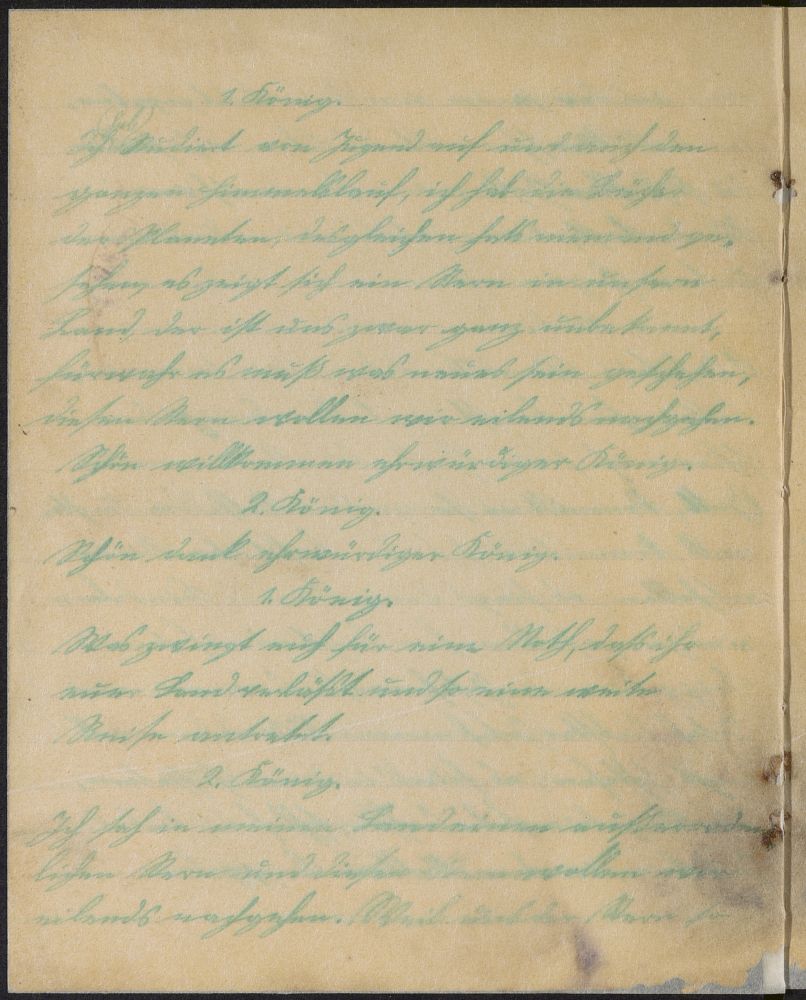 1. König.
(hab)
Ich Studiert von Jugend auf und auch den
ganzen Himmelslauf, ich hab die Bücher
der Planeten, desgleichen hats niemand ge-
sehen, es zeigt sich ein Stern in unsern
Land, der ist uns zwar ganz unbekannt,
fürwahr es muß was neues sein geschehen,
diesen Stern wollen wir eilends nachgehen.
Schön willkommen ehrwürdiger König.
2. König.
Schön dank ehrwürdiger König.
1. König.
Was zwingt euch für eine Noth, dass ihr
euer Land verläßt und so eine weite
Reise antretet.
2. König.
Ich sah in meinen Land einen außerorden
lichen Stern und diesen wollen wir
eilends nachgehen. Weil der Stern so